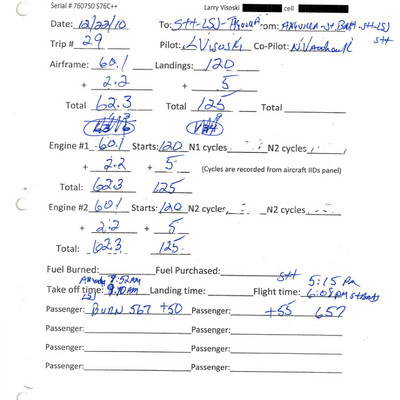 Serial # 760750 S76C++ Larry Visoski cell
Date: 12/22/10 To: STT-LSJ-Anguilla From: Anguilla-St Bart-STT-LSJ
STT
Trip # 29 Pilot: L Visoski Co-Pilot:
Airframe: 60.1 Landings: 120
+ 2.2 + 5
Total 62.3 Total 125
Engine #1 60.1 Starts: 120 N1 cycles N2 cycles
+ 2.2 + 5 (Cycles are recorded from aircraft IIDs panel)
Total: 62.3 125
Engine #2 60.1 Starts: 120 N2 cycles N2 cycles
+ 2.2 + 5
Total: 62.3 125
Fuel Burned: Fuel Purchased: STT 5:15 PM
9:52AM
Take off time: 9:40AM Landing time: Flight time: 6:09PM
LSJ
Passenger: BURN 567 +50 Passenger: +55 657
Passenger: Passenger:
Passenger: Passenger:
Passenger: Passenger: